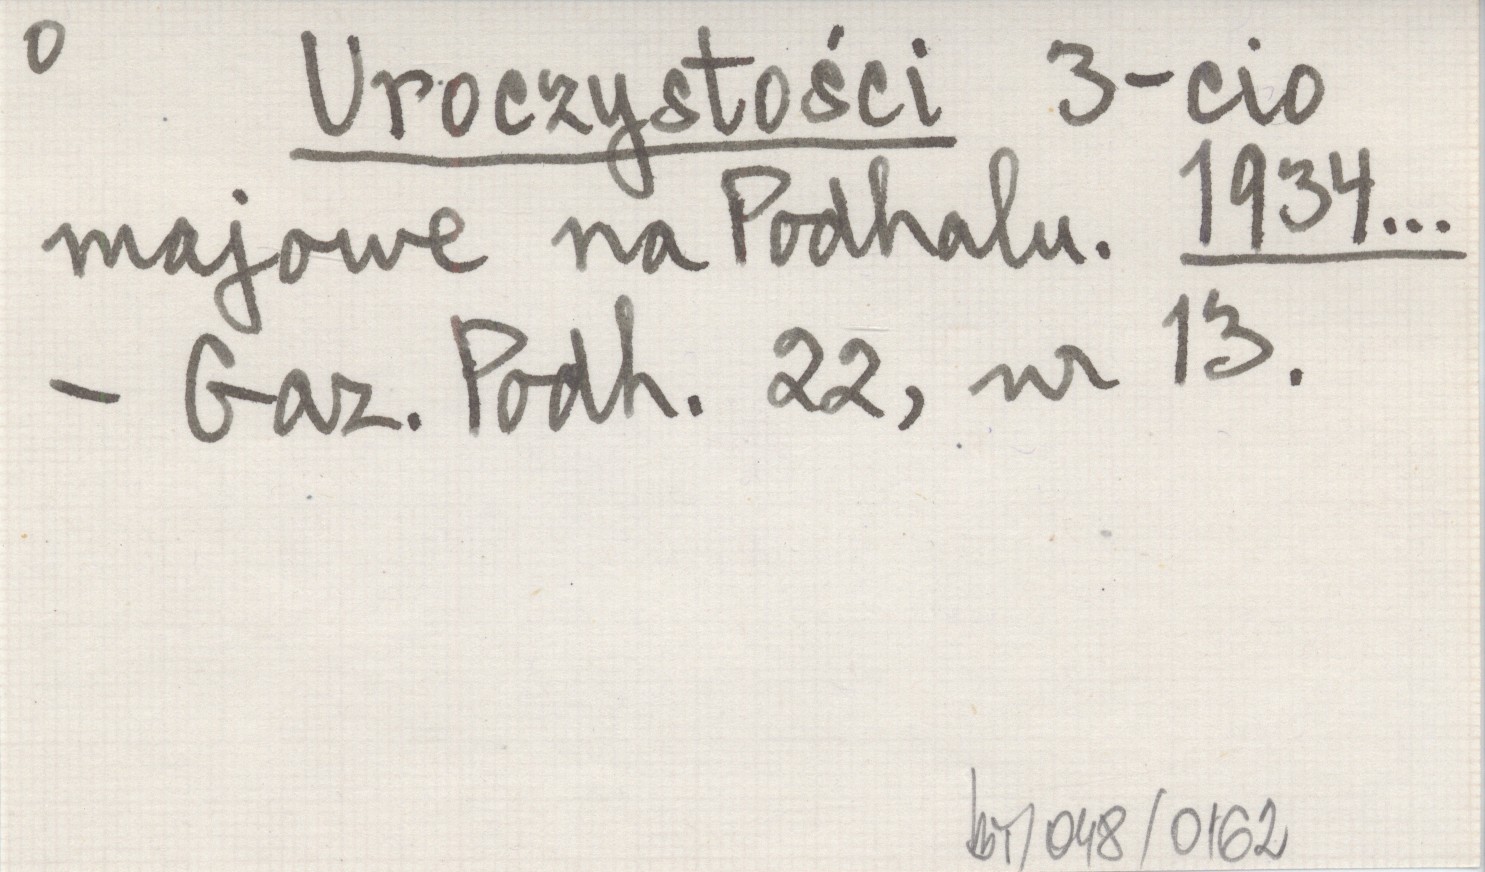 0
Uroczystości 3-cio
majowe na Podhalu. 1934...
- Gaz. Podh. 22, nr 13.
/048/0162